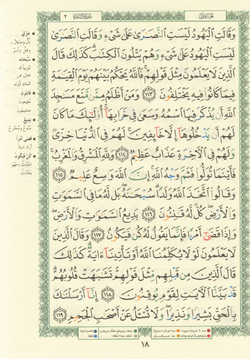 وَقَالَتِ الْيَهُودُ لَيْسَتِ النَّصَارَىٰ عَلَىٰ شَيْءٍ وَقَالَتِ النَّصَارَىٰ
لَيْسَتِ الْيَهُودُ عَلَىٰ شَيْءٍ وَهُمْ يَتْلُونَ الْكِتَابَ كَذَٰلِكَ قَالَ
الَّذِينَ لَا يَعْلَمُونَ مِثْلَ قَوْلِهِمْ فَاللَّهُ يَحْكُمُ بَيْنَهُمْ يَوْمَ الْقِيَامَةِ
فِيمَا كَانُوا فِيهِ يَخْتَلِفُونَ ١١٣ وَمَنْ أَظْلَمُ مِمَّنْ مَنَعَ مَسَاجِدَ
اللَّهِ أَنْ يُذْكَرَ فِيهَا اسْمُهُ وَسَعَىٰ فِي خَرَابِهَا أُولَٰئِكَ مَا كَانَ
لَهُمْ أَنْ يَدْخُلُوهَا إِلَّا خَائِفِينَ لَهُمْ فِي الدُّنْيَا خِزْيٌ
وَلَهُمْ فِي الْآخِرَةِ عَذَابٌ عَظِيمٌ ١١٤ وَلِلَّهِ الْمَشْرِقُ وَالْمَغْرِبُ
فَأَيْنَمَا تُوَلُّوا فَثَمَّ وَجْهُ اللَّهِ إِنَّ اللَّهَ وَاسِعٌ عَلِيمٌ ١١٥
وَقَالُوا اتَّخَذَ اللَّهُ وَلَدًا سُبْحَانَهُ بَلْ لَهُ مَا فِي السَّمَاوَاتِ
وَالْأَرْضِ كُلٌّ لَهُ قَانِتُونَ ١١٦ بَدِيعُ السَّمَاوَاتِ وَالْأَرْضِ
وَإِذَا قَضَىٰ أَمْرًا فَإِنَّمَا يَقُولُ لَهُ كُنْ فَيَكُونُ ١١٧ وَقَالَ الَّذِينَ
لَا يَعْلَمُونَ لَوْلَا يُكَلِّمُنَا اللَّهُ أَوْ تَأْتِينَا آيَةٌ كَذَٰلِكَ
قَالَ الَّذِينَ مِنْ قَبْلِهِمْ مِثْلَ قَوْلِهِمْ تَشَابَهَتْ قُلُوبُهُمْ
قَدْ بَيَّنَّا الْآيَاتِ لِقَوْمٍ يُوقِنُونَ ١١٨ إِنَّا أَرْسَلْنَاكَ
بِالْحَقِّ بَشِيرًا وَنَذِيرًا وَلَا تُسْأَلُ عَنْ أَصْحَابِ الْجَحِيمِ ١١٩
١٨